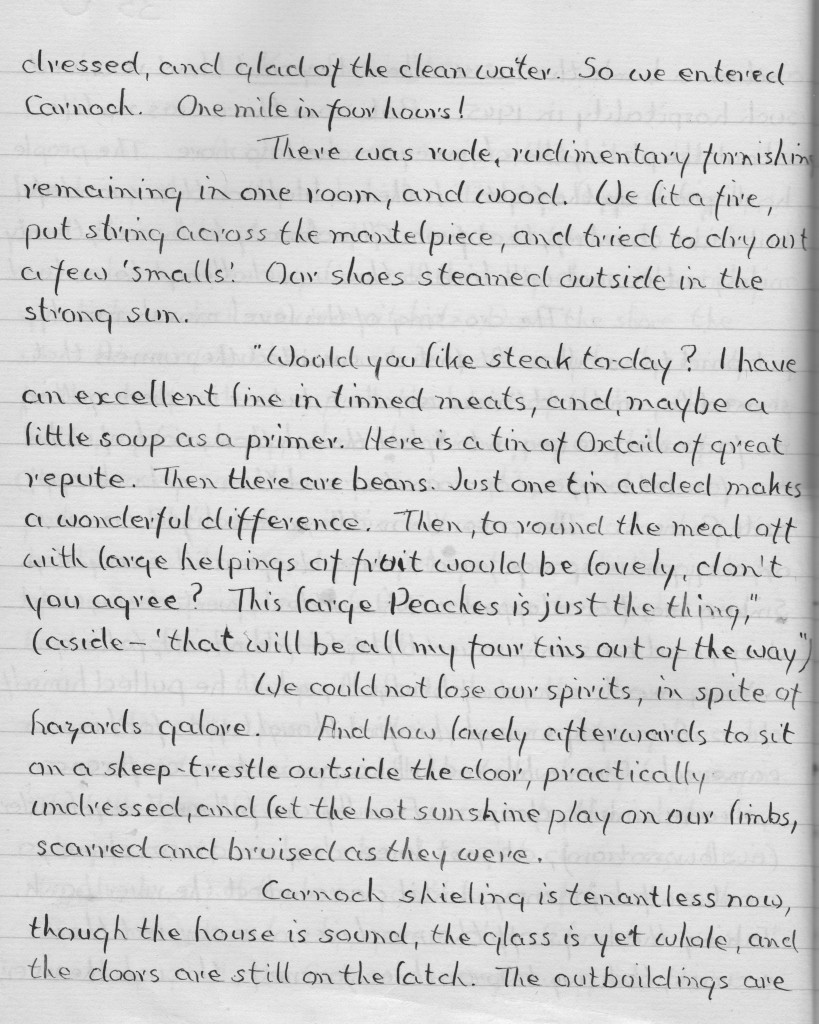 dressed, and glad of the clean water. So we entered
Carnoch. One mile in four hours!
There was rude, rudimentary furnishin
remaining in one room, and wood. We lit a fire,
put string across the mantelpiece, and tried to dry out
a few 'smalls'. Our shoes steamed outside in the
strong sun.
"Would you like steak to-day? I have
an excellent line in tinned meats, and, maybe a
little soup as a primer. Here is a tin of Oxtail of great
repute. Then there are beans. Just one tin added makes
a wonderful difference. Then, to round the meal off
with large helpings of fruit would be lovely, don't
you agree? This large Peaches is just the thing,"
(aside - 'that will be all my four tins out of the way")
We could not lose our spirits, in spite of
hazards galore. And how lovely afterwards to sit
on a sheep-trestle outside the door, practically
undressed, and let the hot sunshine play on our limbs,
scarred and bruised as they were.
Carnoch shieling is tenantless now,
though the house is sound, the glass is yet whole, and
the doors are still on the latch. The outbuildings are